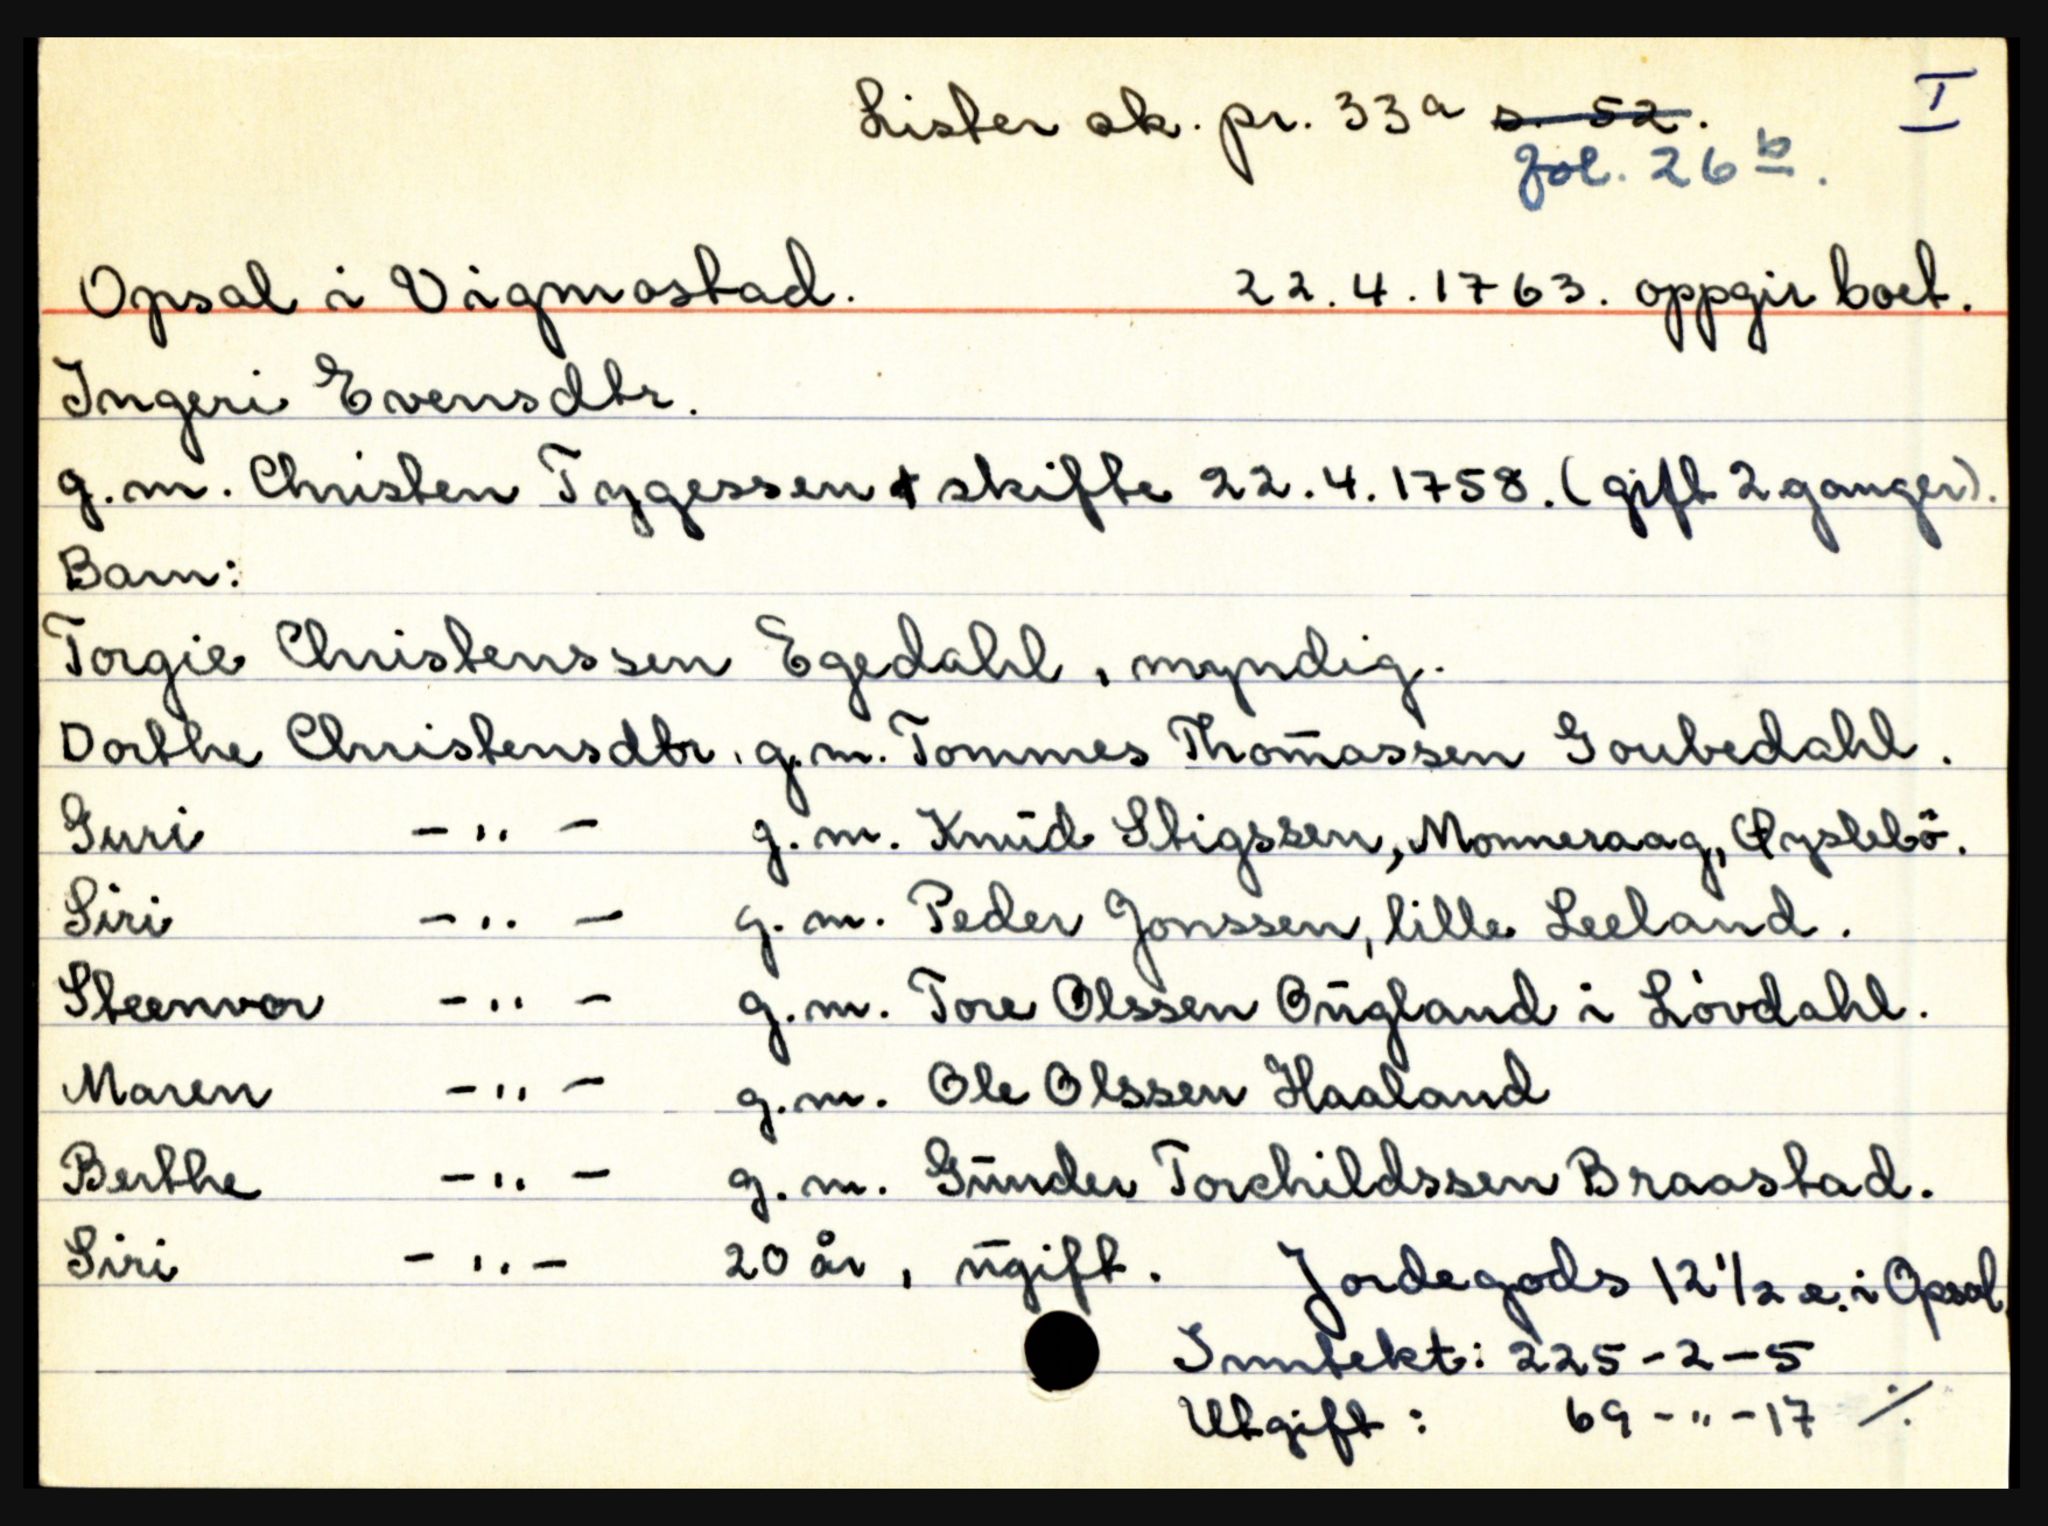 Lister sk. pr. 33a s. 52. I
fol. 26 b.
Opsal i Vigmostad. 22.4.1763. oppgir boet.
Ingeri Evensdtr.
g.m. Christen Tygessen + skifte 22.4.1758. (gift 2 ganger).
Barn:
Torgie Christenssen Egedahl, myndig.
Dorthe Christensdtr. g.m. Tommes Thom̄assen Goubedahl.
Guri -"- g.m. Knūd Stigssen, Monneraag, Øyslebö.
Siri -"- g.m. Peder Jonssen, lille Leeland.
Steenvor -"- g.m. Tore Olssen Oūgland i Lövdahl.
Maren -"- g.m. Ole Olssen Haaland
Berthe -"- g.m. Gūnder Torchildssen Braastad.
Siri -"- 20 år, ūgift. Jordegods 12 1/2 e. i Opsal.
Inntekt: 225-2-5
Utgift: 69-"-17 ./.